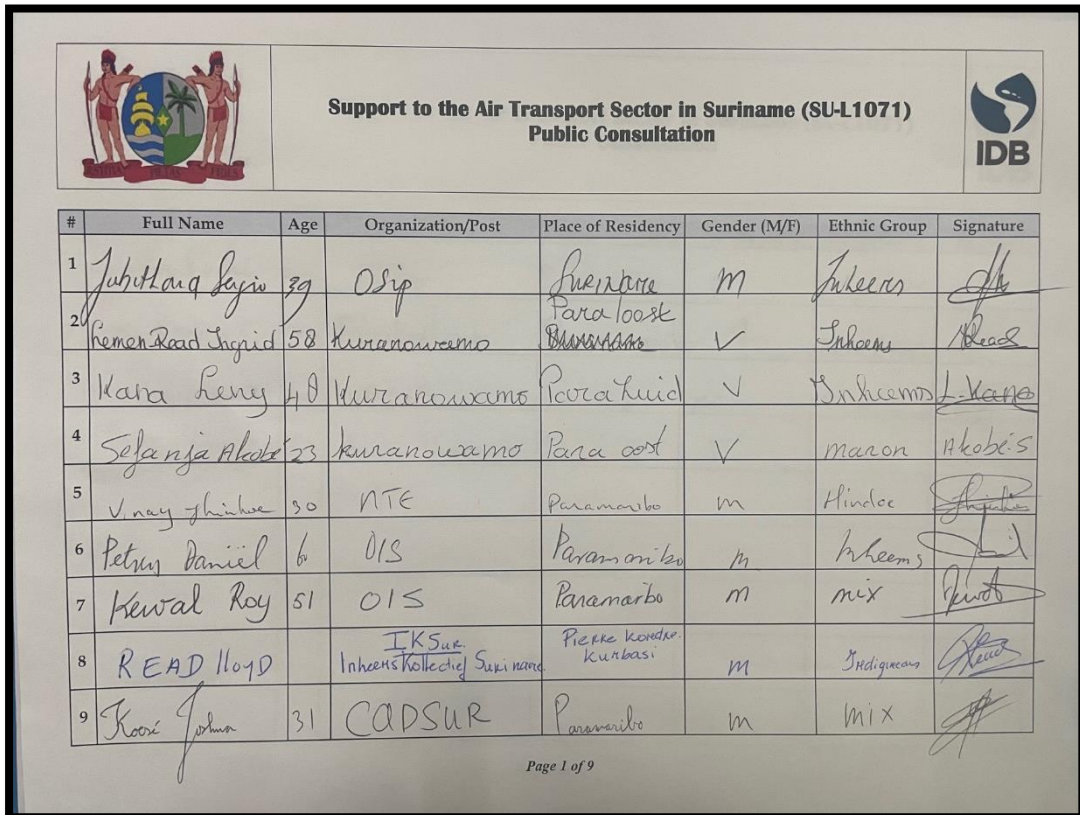 JUSTITIA PIETAS FIDES
Support to the Air Transport Sector in Suriname (SU-L1071)
Public Consultation
IDB
# Full Name Age Organization/Post Place of Residency Gender (M/F) Ethnic Group Signature
1 Sergio 39 OSip Suriname m Inheems
Para loost
2 Read Ingrid 58 Kuranowamo V Inheems Read
3 Kana Leny 48 Kuranowamo Para Zuid V Inheems L. Kano
4 Sefanja Akobé 23 kuranowamo Para oost V maron Akobé.S
5 Vinay 30 NTE Paramaribo m Hindoe
6 Daniël OIS Paramaribo m Inheems
7 Kewal Roy 51 OIS Paramarbo m mix
8 READ lloyD IKSur. Inheems Kollectief Suriname Pierre Kondre. Kumbasi m
9 Joshua 31 CADSUR Paramaribo m mix
Page 1 of 9